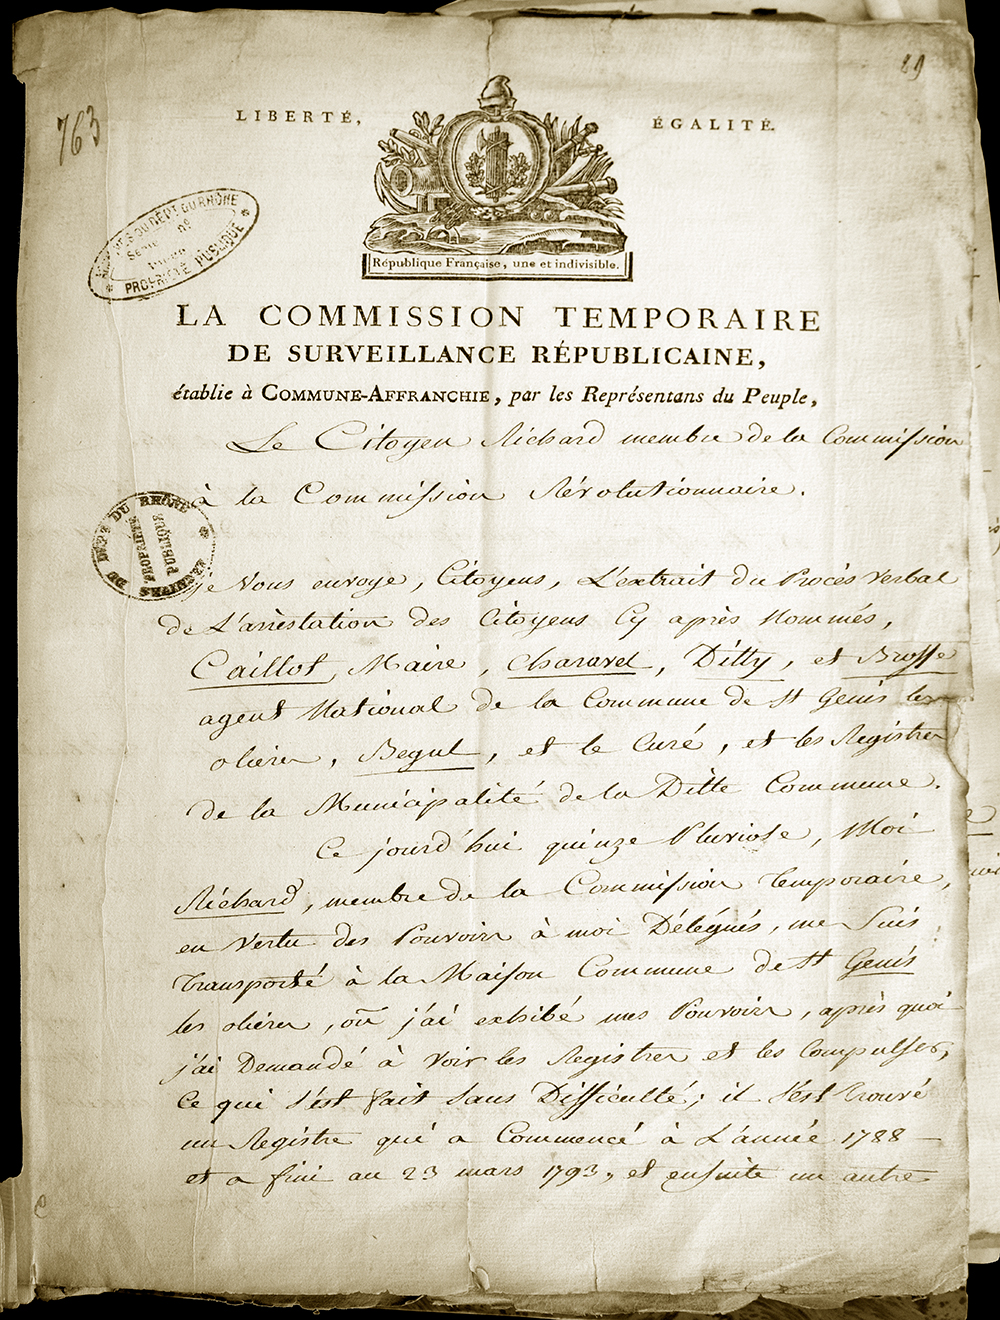 29
763
LIBERTÉ, ÉGALITÉ.
République Française, une et indivisible.
DU DÉPT DU RHÔNE
SÉRIE
PROPRIÉTÉ PUBLIQUE
LA COMMISSION TEMPORAIRE
DE SURVEILLANCE RÉPUBLICAINE,
établie à COMMUNE-AFFRANCHIE, par les Représentans du Peuple,
Le Citoyen Richard membre de la Commission
à la Commission Révolutionnaire.
ARCHIVES DU DÉPT DU RHÔNE
PROPRIÉTÉ PUBLIQUE
je vous envoye, Citoyens, L'extrait du Procès verbal
de L'arrestation des Citoyens Cy après Nommés,
Caillot, Maire, Charavel, Ditty, et Brosse
agent National de la Commune de St Genis les
olieres, Begul, et le Curé, et les Registres
de la Municipalité de la Ditte Commune.
Ce jourd'hui quinze Pluviose, Moi
Richard, membre de la Commission Temporaire,
en Vertu des Pouvoirs à moi Délégués, me Suis
Transporté à la Maison Commune de St Genis
les olieres, où j'ai exhibé mes Pouvoirs, après quoi
j'ai Demandé à Voir les Registres et les Compulser,
Ce qui s'est fait Sans Difficulté; il s'est Trouvé
un Registre qui a Commencé à L'année 1788
et a fini au 23 mars 1793, et ensuite un autre